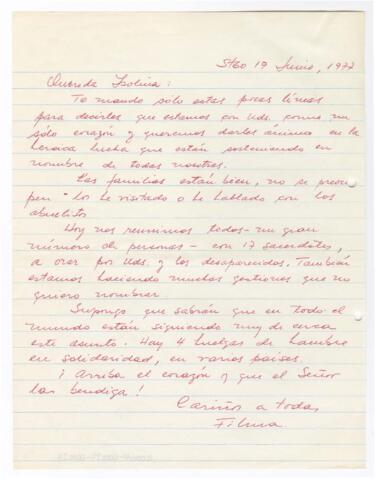 Stgo 19 Junio, 1977
Querida Isolina:
Te mando sólo estas pocas líneas
para decirles que estamos con Uds. como un
sólo corazón y queremos darles ánimo en la
heroica lucha que están sosteniendo en
nombre de todas nosotras.
Las familias están bien, no se preocu
pen - los he visitado o he hablado con los
abuelitos
Hoy nos reunimos todos - un gran
número de personas - con 17 sacerdotes,
a orar por Uds. y los desaparecidos. También
estamos haciendo muchas gestiones que no
quiero nombrar.
Supongo que sabrán que en todo el
mundo están siguiendo muy de cerca
este asunto. Hay 4 huelgas de hambre
en solidaridad, en varios países.
¡Arriba el corazón y que el Señor
las bendiga!
Cariños a todas
Filma.